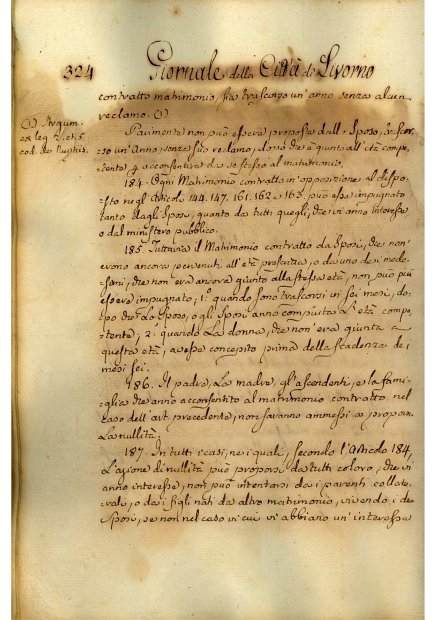 324 Giornale della Città di Livorno
contratto matrimonio, sia trascorso un'anno senza alcun
reclamo. (1)
(1) Argum.
ex leg. 2. et 5
cod. de Nuptiis.
Parimente non può essere proposta dallo Sposo, trascor-
so un'Anno senza suo reclamo, dopo che è giunto all'età compe
tente p acconsentire da se stesso al matrimonio.
184. Ogni Matrimonio contratto in opposizione al dispo-
sto negli Articoli 144. 147. 161. 162 e 163. può esse impugnato
tanto dagli Sposi, quanto da tutti quegli, che vi anno interesse
o dal ministero pubblico.
185. Tuttavia il Matrimonio contratto da Sposi, che non
erono ancora pervenuti all'età prescritta, o da uno dei mede-
simi, che non era ancora giunto alla stessa età, non può più
essere impugnato, 1.° quando sono trascorsi in sei mesi, do-
po che lo Sposo, o gli Sposi anno compiuta l'età compe-
tente; 2: quando la donna, che non era giunta a
questa età, avesse concepito prima della scadenza dei
mesi sei.
186. Il padre, la madre, gl'ascendenti, e la fami-
glia che anno acconsentito al matrimonio contratto nel
caso dell'art. precedente, non saranno ammessi a proporn
la nullità.
187. In tutti i casi, nei quali, secondo l'Articolo 184,
l'azione di nullità può proporsi da tutti coloro, che vi
anno interesse, non può intentarsi dai parenti collate-
rali, o dai figli nati da altro matrimonio, vivendo i due
Sposi, se non nel caso in cui vi abbiano un'interesse